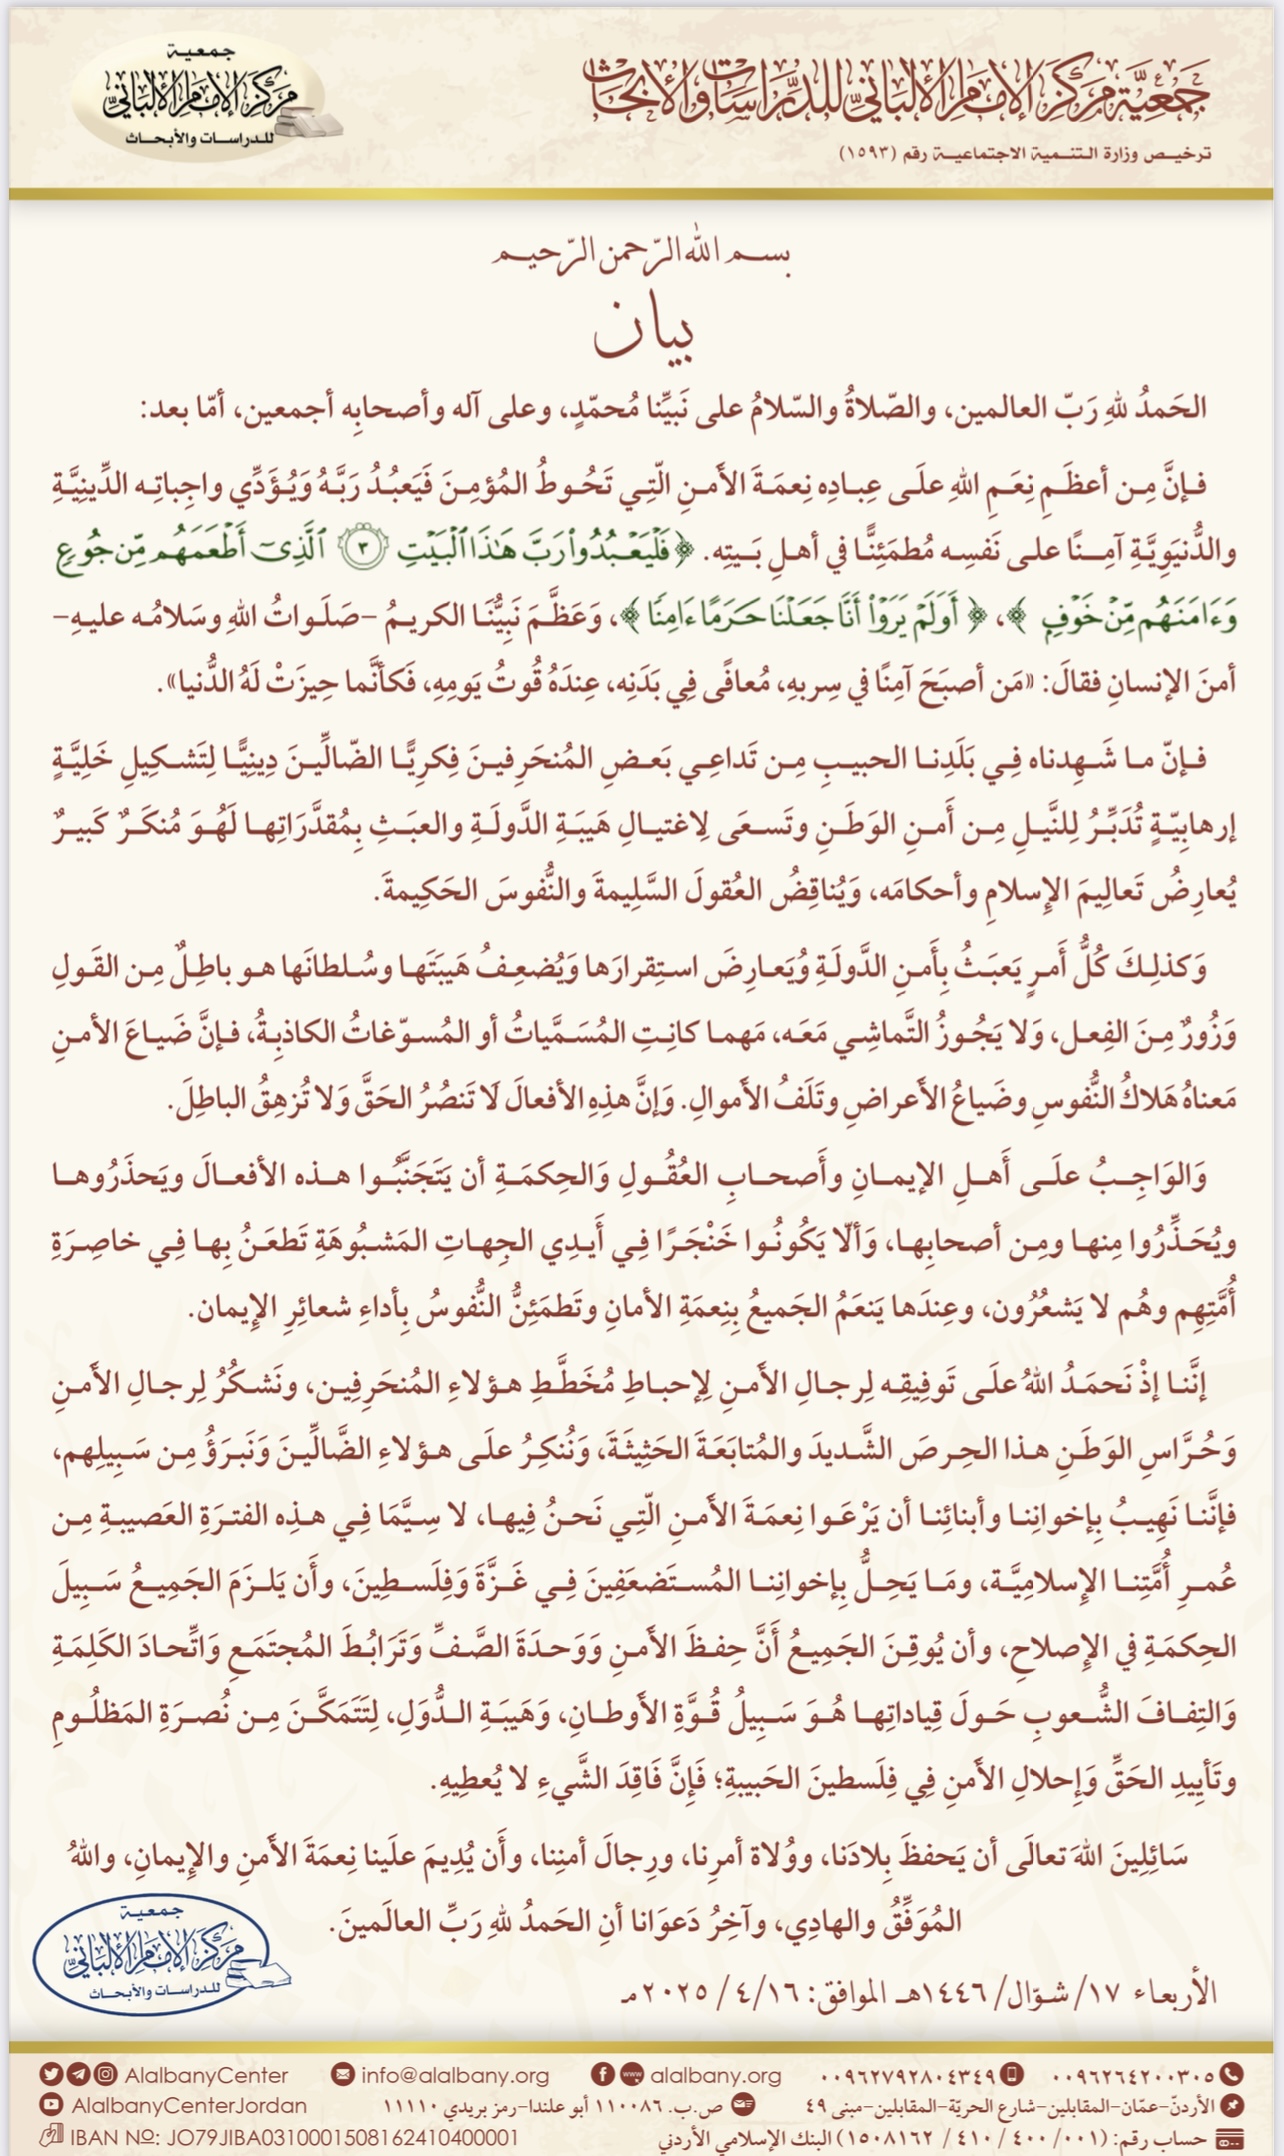 جمعية
مركز الإمام الألباني
للدراسات والأبحاث
جَمْعِيَّة مَرْكَز الإمَام الألبَانِيّ للدِّرَاسَات وَالأبحَاث
ترخيص وزارة التنمية الاجتماعية رقم (١٥٩٣)
بسم الله الرّحمن الرّحيم
بيان
الحَمدُ للهِ رَبّ العالمين، والصّلاةُ والسّلامُ على نَبيِّنا مُحمّدٍ، وعلى آله وأصحابِه أجمعين، أمّا بعد:
فإنَّ مِن أعظَمِ نِعَمِ اللهِ علَى عِبادِه نِعمَةَ الأَمنِ الّتِي تَحُوطُ المُؤمِنَ فَيَعبُدُ رَبَّهُ وَيُؤَدِّي واجِباتِه الدِّينِيَّةِ
والدُّنيَوِيَّةِ آمِنًا على نَفسِه مُطمَئِنًّا في أهلِ بَيتِه. ﴿فَلۡيَعۡبُدُواْ رَبَّ هَٰذَا ٱلۡبَيۡتِ ٣ ٱلَّذِيٓ أَطۡعَمَهُم مِّن جُوعٖ
وَءَامَنَهُم مِّنۡ خَوۡفِۭ ﴾، ﴿ أَوَلَمۡ يَرَوۡاْ أَنَّا جَعَلۡنَا حَرَمًا ءَامِنٗا ﴾، وَعَظَّمَ نَبِيُّنَا الكريمُ -صَلَواتُ اللهِ وسَلامُه عليهِ-
أمنَ الإنسانِ فقالَ: «مَن أصبَحَ آمِنًا في سِربهِ، مُعافًى فِي بَدَنِه، عِندَهُ قُوتُ يَومِهِ، فَكأنَّما حِيزَتْ لَهُ الدُّنيا».
فإنّ ما شَهِدناه فِي بَلَدِنا الحبيبِ مِن تَداعِي بَعضِ المُنحَرِفينَ فِكرِيًّا الضّالِّينَ دِينِيًّا لِتَشكِيلِ خَلِيَّةٍ
إرهابِيّةٍ تُدَبِّرُ لِلنَّيلِ مِن أَمنِ الوَطَنِ وتَسعَى لِاغتيالِ هَيبَةِ الدَّولَةِ والعبَثِ بِمُقدَّرَاتِها لَهُوَ مُنكَرٌ كَبيرٌ
يُعارِضُ تَعالِيمَ الإِسلامِ وأحكامَه، وَيُناقِضُ العُقولَ السَّلِيمةَ والنُّفوسَ الحَكِيمةَ.
وَكذلِكَ كُلُّ أَمرٍ يَعبَثُ بِأَمنِ الدَّولَةِ وُيَعارِضَ استِقرارَها وَيُضعِفُ هَيبَتَها وسُلطانَها هو باطِلٌ مِن القَولِ
وَزُورٌ مِنَ الفِعل، وَلا يَجُوزُ التَّماشِي مَعَه، مَهما كانَتِ المُسَمَّياتُ أو المُسوّغاتُ الكاذبِةُ، فإنَّ ضَياعَ الأمنِ
مَعناهُ هَلاكُ النُّفوسِ وضَياعُ الأَعراضِ وتَلَفُ الأَموالِ. وَإنَّ هذِهِ الأفعالَ لَا تَنصُرُ الحَقَّ وَلا تُزهِقُ الباطِلَ.
وَالوَاجِبُ علَى أَهلِ الإيمانِ وأَصحابِ العُقُولِ وَالحِكمَةِ أن يَتَجَنَّبُوا هذه الأفعالَ ويَحذَرُوها
ويُحَذِّرُوا مِنها ومِن أصحابِها، وَألّا يَكُونُوا خَنْجَرًا فِي أَيدِي الجِهاتِ المَشبُوهَةِ تَطعَنُ بِها فِي خاصِرَةِ
أُمَّتِهِم وهُم لا يَشعُرُون، وعِندَها يَنعَمُ الجَميعُ بِنِعمَةِ الأمانِ وتَطمَئِنُّ النُّفوسُ بِأداءِ شعائِرِ الإيمان.
إنَّنا إذْ نَحمَدُ اللهُ علَى تَوفِيقِه لِرجالِ الأَمنِ لِإحباطِ مُخَطَّطِ هؤلاءِ المُنحَرِفِين، ونَشكُرُ لِرجالِ الأَمنِ
وَحُرَّاسِ الوَطَنِ هذا الحِرصَ الشَّديدَ والمُتابَعَةَ الحَثِيثَةَ، وَنُنكِرُ علَى هؤلاءِ الضَّالِّينَ وَنَبرَؤُ مِن سَبِيلِهِم،
فإنَّنا نَهِيبُ بِإخوانِنا وأبنائِنا أن يَرْعَوا نِعمَةَ الأمنِ الّتِي نَحنُ فِيها، لا سِيَّمَا فِي هذِه الفترَةِ العَصيبةِ مِن
عُمرِ أُمَّتِنا الإِسلامِيَّة، ومَا يَحِلُّ بِإخوانِنا المُستَضعَفِينَ فِي غَزَّةَ وَفِلَسطِينَ، وأَن يَلزَمَ الجَمِيعُ سَبِيلَ
الحِكمَةِ في الإِصلاحِ، وأن يُوقِنَ الجَمِيعُ أَنَّ حِفظَ الأمنِ وَوَحدَةَ الصَّفِّ وَتَرَابُطَ المُجتَمَعِ وَاتِّحادَ الكَلِمَةِ
وَالتِفافَ الشُّعوبِ حَولَ قِياداتِها هُوَ سَبِيلُ قُوَّةِ الأَوطانِ، وَهَيبَةِ الدُّوَلِ، لِتَتَمَكَّنَ مِن نُصرَةِ المَظلُومِ
وتَأيِيدِ الحَقِّ وَإحلالِ الأَمنِ فِي فِلَسطينَ الحَبيبةِ؛ فَإِنَّ فَاقِدَ الشَّيءِ لا يُعطِيهِ.
سَائِلِينَ اللهَ تعالَى أن يَحفظَ بِلادَنا، ووُلاة أمرِنا، ورِجالَ أمنِنا، وأَن يُدِيمَ علَينا نِعمَةَ الأَمنِ والإِيمانِ، واللهُ
المُوَفِّقُ والهادِي، وآخِرُ دَعوَانا أنِ الحَمدُ للهِ رَبِّ العالَمينَ.
جمعية
مركز الإمام الألباني
للدراسات والأبحاث
الأربعاء ١٧/ شوّال/ ١٤٤٦هـ الموافق: ١٦/ ٤ / ٢٠٢٥مـ
٠٠٩٦٢٦٤٢٠٠٣٠٥ ٠٠٩٦٢٧٩٢٨٠٤٣٤٩ alalbany.org info@alalbany.org AlalbanyCenter
الأردنّ-عمّان-المقابلين-شارع الحريّة-المقابلين-مبنى ٤٩ ص.ب. ١١٠٠٨٦ أبو علندا-رمز بريدي ١١١١٠ AlalbanyCenterJordan
حساب رقم: (٠٠١/ ٤٠٠ / ٤١٠ / ١٥٠٨١٦٢) البنك الإسلامي الأردني IBAN Nº: JO79JIBA0310001508162410400001